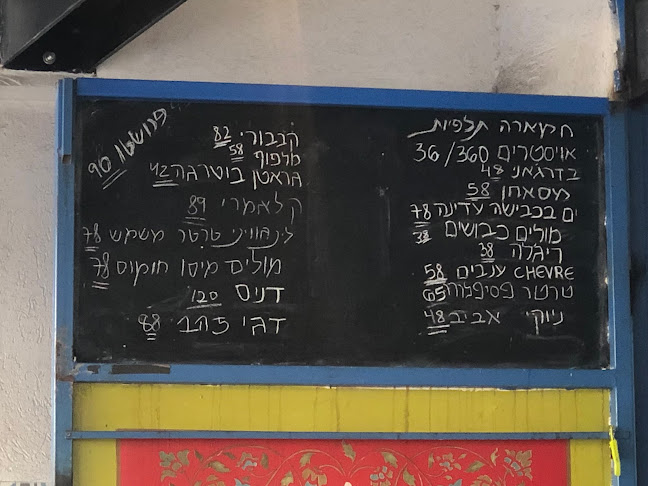 חמארה תלפיות
אויסטרים 36/360
בדרגאני 48
מסאחן 58
ים בכבישה עדינה 78
מולים כבושים 38
ריגלה 38
CHEVRE ענבים 58
טרטר פסיפלורה 65
ניוקי אביב 48
קבבורי 82
מלפוף 58
גראטן בוטרגה 42
קלאמרי 89
לינגוויני טרטר משמש 78
מולים מיסו חומוס 78
דניס 120
דגי זהב 88
פרושוטו 90